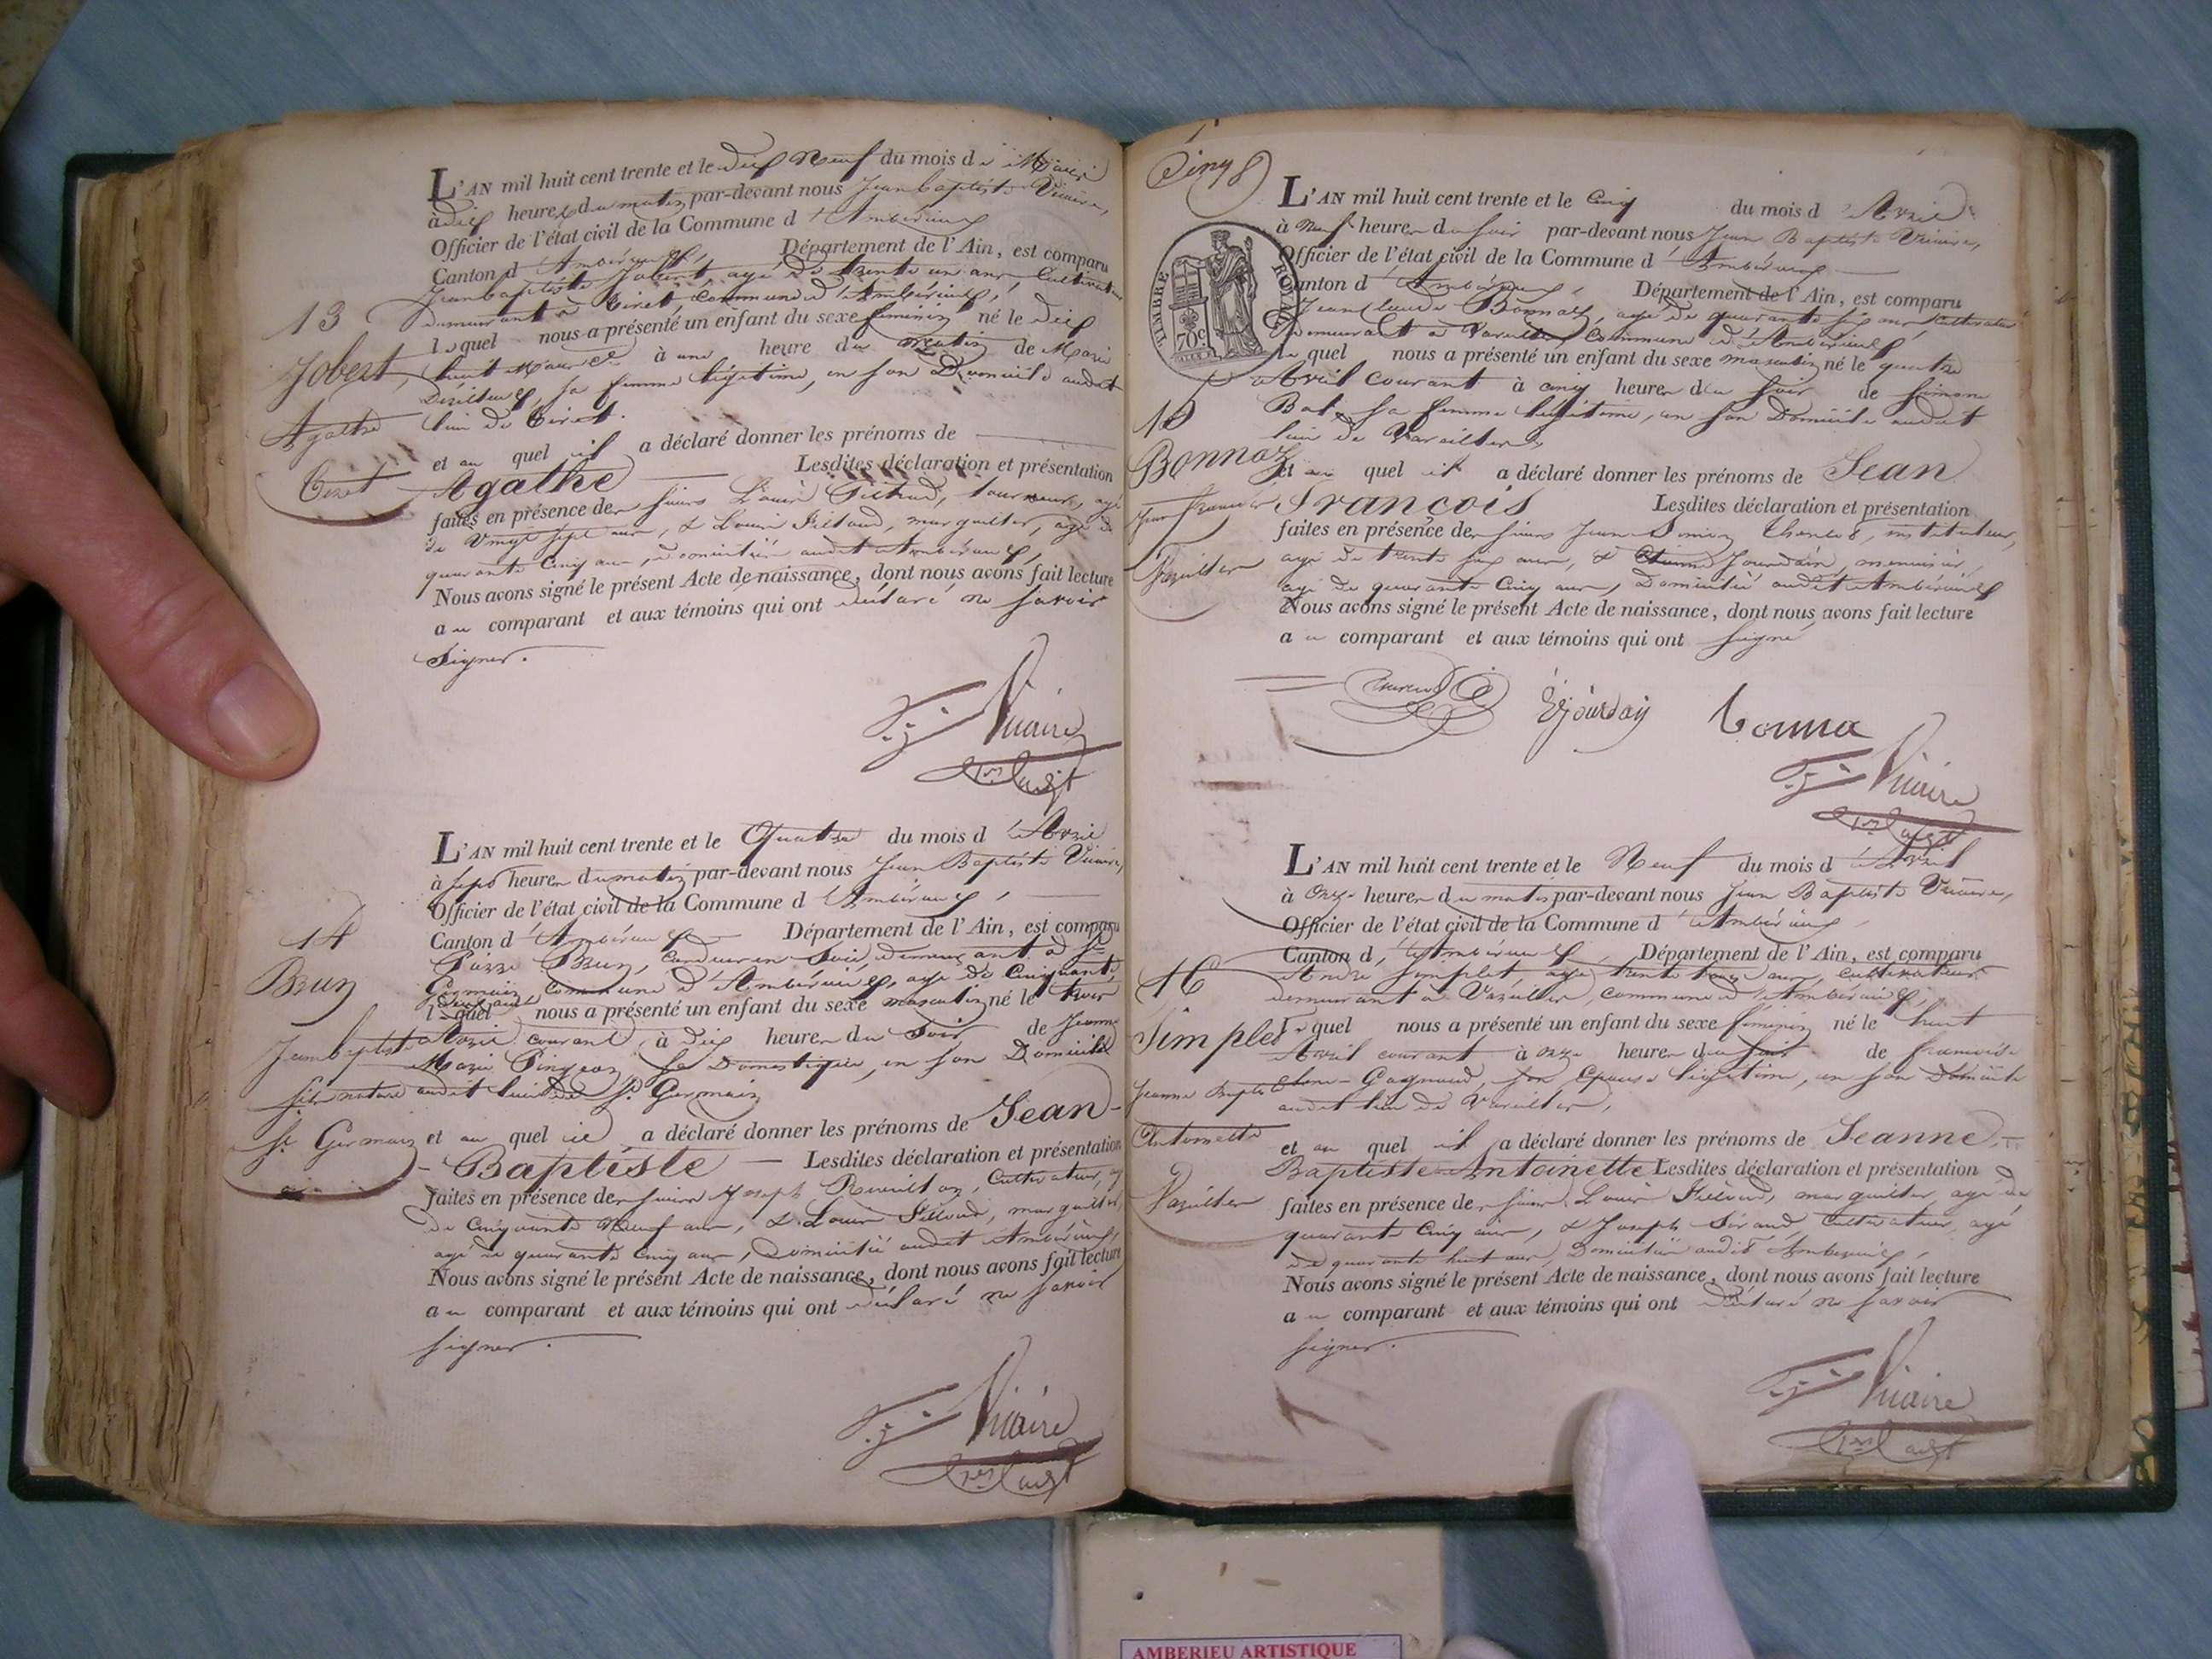 L'AN mil huit cent trente et le Dix Neuf du mois de Mars
à Dix heures du matin par-devant nous Jean Baptiste Vicaire,
Officier de l'état civil de la Commune d'Ambérieux
Canton d'Ambérieux, Département de l'Ain, est comparu
Jean baptiste Jobert, agé de trente un ans, Cultivateur
demeurant à Tiret, commune d'Ambérieux,
lequel nous a présenté un enfant du sexe féminin né le Dix
huit à une heure du matin de Marie
sa femme légitime, en son Domicile audit
lieu de Tiret.
et auquel il a déclaré donner les prénoms de
Agathe Lesdites déclaration et présentation
faites en présence des sieurs Louis agé
de Vingt sept ans, & Louis marguiller, agé de
quarante Cinq ans, domiciliés audit Ambérieux,
Nous avons signé le présent Acte de naissance, dont nous avons fait lecture
au comparant et aux témoins qui ont déclaré ne savoir
Signer.
13
Jobert,
Agathe
Tiret
Vicaire
L'AN mil huit cent trente et le Quatre du mois d'Avril
à sept heures du matin par-devant nous Jean Baptiste Vicaire,
Officier de l'état civil de la Commune d'Ambérieux,
Canton d'Ambérieux Département de l'Ain, est comparu
Brun, demeurant à St
Germain, commune d'Ambérieux, agé de Cinquante
lequel nous a présenté un enfant du sexe masculin né le trois
Avril courant à dix heures du Soir de Jeanne
Marie Pingeon sa Domestique, en son Domicile
audit lieu de St Germain
et auquel il a déclaré donner les prénoms de Jean-
-Baptiste — Lesdites déclaration et présentation
faites en présence des sieurs Joseph Cultivateur, agé
de Cinquante Neuf ans, & Louis marguiller,
agé de quarante Cinq ans, Domiciliés audit Ambérieux,
Nous avons signé le présent Acte de naissance, dont nous avons fait lecture
au comparant et aux témoins qui ont déclaré ne savoir
signer.
14
Brun
Jean baptiste
St Germain
Vicaire
L'AN mil huit cent trente et le Cinq du mois d'Avril
à Neuf heures du soir par-devant nous Jean Baptiste Vicaire,
Officier de l'état civil de la Commune d'Ambérieux
Canton d'Ambérieux, Département de l'Ain, est comparu
Jean Claude Bonnaz, agé de quarante six ans Cultivateur
demeurant à Vareilles, commune d'Ambérieux,
lequel nous a présenté un enfant du sexe masculin né le quatre
Avril courant à cinq heures du soir de
sa femme légitime, en son Domicile audit
lieu de Vareilles
et auquel il a déclaré donner les prénoms de Jean
François Lesdites déclaration et présentation
faites en présence des sieurs Jean instituteur,
agé de trente six ans, & Etienne Jourdain, menuisier,
agé de quarante Cinq ans, Domiciliés audit Ambérieux
Nous avons signé le présent Acte de naissance, dont nous avons fait lecture
au comparant et aux témoins qui ont signé
TIMBRE ROYAL
70c
Bonnaz
Jean François
Vareilles
Vicaire
L'AN mil huit cent trente et le Neuf du mois d'Avril
à onze heures du matin par-devant nous Jean Baptiste Vicaire,
Officier de l'état civil de la Commune d'Ambérieux
Canton d'Ambérieux, Département de l'Ain, est comparu
André Simplet, agé trente ans, cultivateur
demeurant à Vareilles, commune d'Ambérieux,
lequel nous a présenté un enfant du sexe féminin né le huit
Avril courant à onze heures du soir de françoise
Gagnaud, son Epouse légitime, en son Domicile
audit lieu de Vareilles,
et auquel il a déclaré donner les prénoms de Jeanne
Baptiste Antoinette Lesdites déclaration et présentation
faites en présence des sieurs Louis marguiller, agé de
quarante Cinq ans, & Joseph Cultivateur, agé
de quarante huit ans, Domiciliés audit Ambérieux,
Nous avons signé le présent Acte de naissance, dont nous avons fait lecture
au comparant et aux témoins qui ont déclaré ne savoir
signer.
16
Simplet
Jeanne Baptiste
Antoinette
Vareilles
Vicaire
AMBERIEU ARTISTIQUE